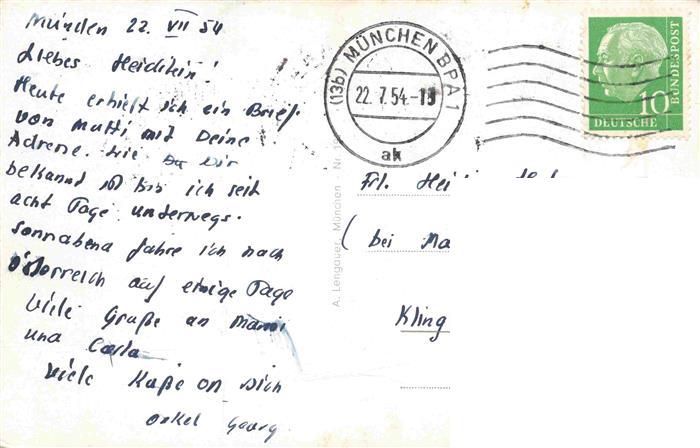 München 22. VII 54
Liebes Heidilein!
Heute erhielt ich ein Brief
von Mutti mit Deine
Adresse. Wie Du Dir
bekannt ist bin ich seit
acht Tage unterwegs.
Sonnabend fahre ich nach
Österreich auf einige Tage
Viele Grüße an Mammi
und Carla
Viele Küße an Dich
Onkel Georg
(13b) MÜNCHEN BPA 1
22.7.54.-13
ak
DEUTSCHE
BUNDESPOST
10
A. Lengauer, München Nr.
Frl.
( bei Ma
Kling